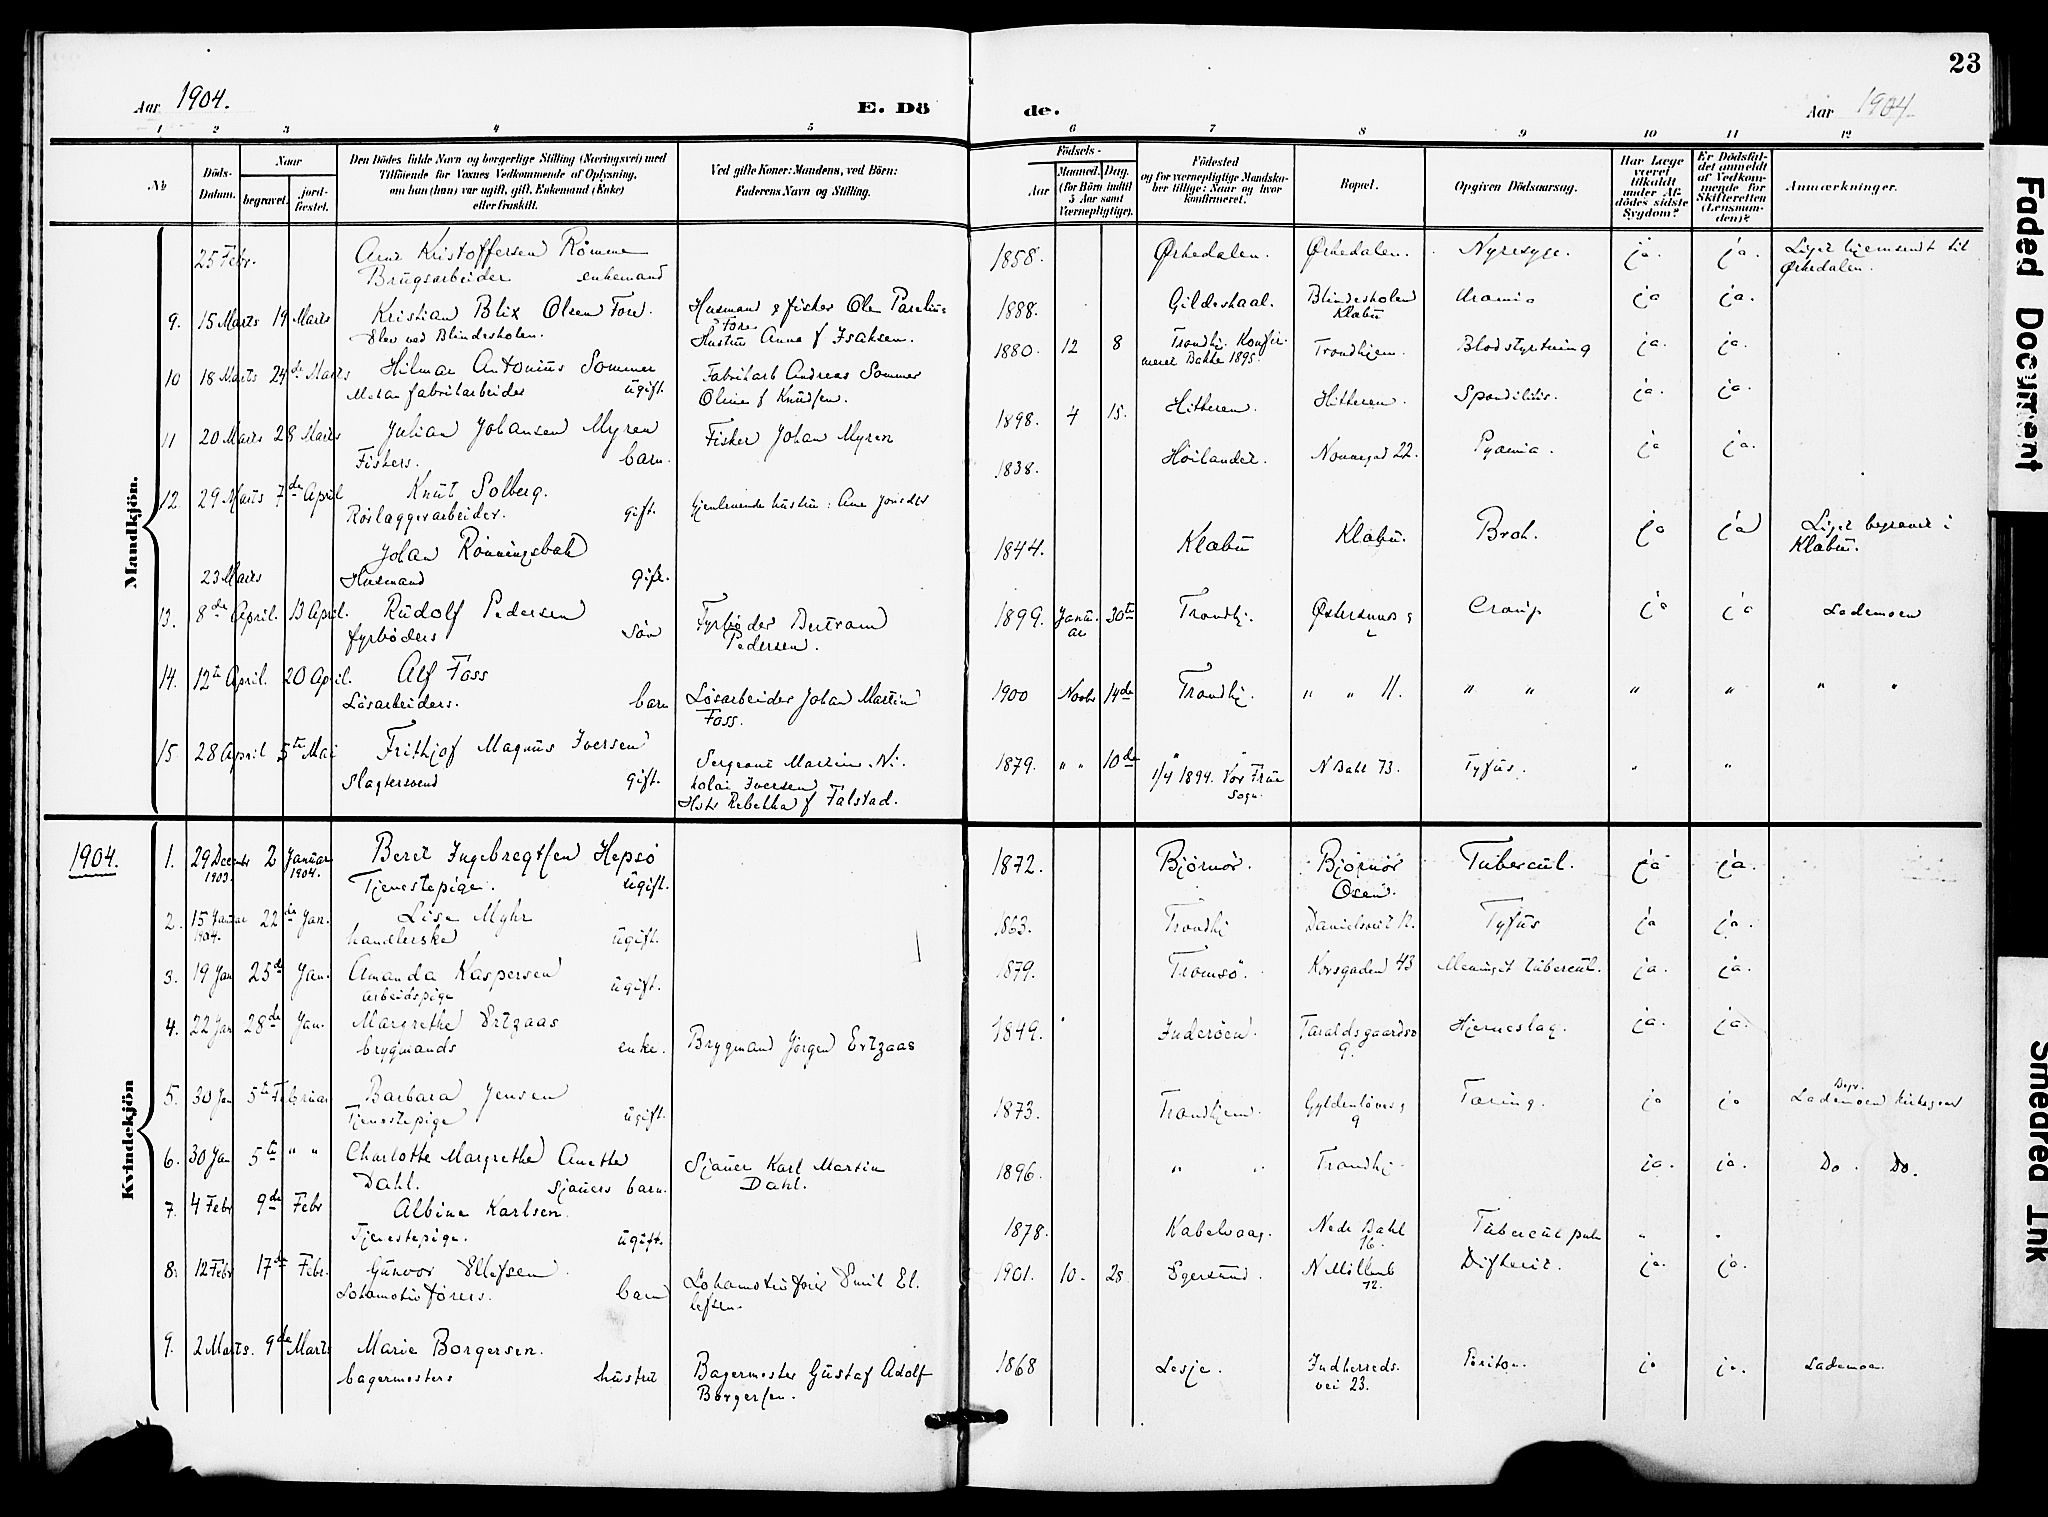 23
Aar 1904.
E. Dö
de.
Aar 1904
1 2 3 4 5 6 7 8 9 10 11 12
No
Döds-
Datum.
Naar
begravet.
jord-
fæstet.
Den Dödes fulde Navn og borgerlige Stilling (Næringsvei) med
Tilföiende for Voxnes Vedkommende af Oplysning,
om han (hun) var ugift, gift, Enkemand (Enke)
eller fraskilt.
Ved gifte Koner: Mandens, ved Börn:
Faderens Navn og Stilling.
Födsels-
Aar
Maaned.
Dag.
(for Börn indtil
5 Aar samt
Værnepligtige).
Födested
og for værnepligtige Mandskaber
tillige: Naar og hvor
konfirmeret.
Bopæl.
Opgiven Dödsaarsag.
Har Læge
været
tilkaldt
under Af-
dödes sidste
Sygdom?
Er Dödsfal-
det anmeldt
af Vedkom-
mende for
Skifteretten
(Lensman-
den)?
Anmærkninger.
Mandkjön.
25 Febr. Arne Kristoffersen Rømme 1858. Ørkedalen. Ørkedalen. Nyresyge. ja. ja. Liget hjemsendt til
Brugsarbeider enkemand Ørkedalen.
9. 15 Marts 19 Marts Kristian Blix Olsen Fore. Husmand & fisker Ole 1888. Gildeskaal. Blindeskolen Uræmia ja ja.
Elev ved Blindeskolen. Fore Klæbu
Hustru Anna f Isaksen.
10 18 Marts 24de Marts Hilmar Antonius Sommer Fabrikarb Andreas Sommer 1880. 12 8 Trondhj. Konfir- Trondhjem. Blodstyrtning ja. ja.
fabrikarbeider ugift. Oline f Knudsen. meret Bakke 1895.
11 20 Marts 28 Marts Julian Johansen Myren Fisker Johan Myren 1898. 4 15. Hitteren. Hitteren. Spondilitis. ja. ja.
Fiskers. barn.
12 29 Marts 7de April Knut Solberg. Gjenlevende hustru: Ane 1838. Høilandet. Nonnegad 22. Pyæmia. ja ja.
Rørlæggerarbeider. gift.
23 Marts Johan Rønningsbak 1844. Klæbu Klæbu. Brok. ja ja Liget begravet i
Husmand gift. Klæbu.
13. 8de April. 13 April. Rudolf Pedersen Fyrbøder Bertram 1899. Janu- 30te Trondhj. Croup ja ja Lademoen
fyrbøders søn Pedersen. ar
14. 12te April. 20 April. Alf Foss Løsarbeider Johan Martin 1900 Novbr 14de Trondhj. " " 11. " " " " " "
Løsarbeiders. barn Foss.
15. 28 April 5te Mai Frithjof Magnus Iversen Sergeant Martin Ni- 1879. " " 10de " " N Bakl 73. Tyfus. " "
Slagtersvend gift. kolai Iversen 1/4 1894. Vor Frue
Hstr Rebekka f Falstad. Sogn.
Kvindekjön
1904. 1. 29 Decembr 2 Januar Beret Ingebregtsen Hepsø 1872. Bjørnør. Bjørnør Tubercul. ja ja.
1903. 1904. Tjenestepige. ugift. Osen.
2. 15 Januar 22de Jan. Lise Myhr 1863. Trondhj Danielsveit 12. Tyfus ja ja.
1904. handlerske ugift.
3. 19 Jan 25de Jan. Amanda Kaspersen 1879. Tromsø. Korsgaden 43 Meningit tubercul. ja. ja.
arbeidspige ugift.
4. 22 Jan 28de Jan. Margrethe Ertzaas Brygmand Jørgen Ertzaas 1849. Inderøen. Taraldsgaardsv Hjerneslag. ja. ja.
brygmands enke. 9.
5. 30 Jan 5te Februar Barbara Jensen 1873. Trondhjem. Gyldenløvesg Tæring. ja ja Lademoen kirkegaard
Tjenestepige ugift. 9
6. 30 Jan 5te " " Charlotte Margrethe Anette Sjauer Karl Martin 1896. " " Trondhj. ja. ja. Do. Do.
Dahl. Sjauers barn. Dahl.
7. 4 Febr 9de Febr Albine Karlsen. 1878. Kabelvaag. Nedr Bakl Tubercul pulm " "
Tjenestepige. ugift. 16.
8. 12 Febr 17de Febr. Gunvor Ellefsen Lokomotivfører Emil El- 1901. 10. 28 Egersund. N Möllenb Difterit. ja. ja.
Lokomotivførers. barn lefsen. 72.
9. 2 Marts. 9de Marts Marie Borgersen. Bagermester Gustaf Adolf 1868 Lesje. Indherreds- Periton. ja ja. Lademoen
bagermesters hustru Borgersen. vei 23.
Faded Document
Smeared Ink